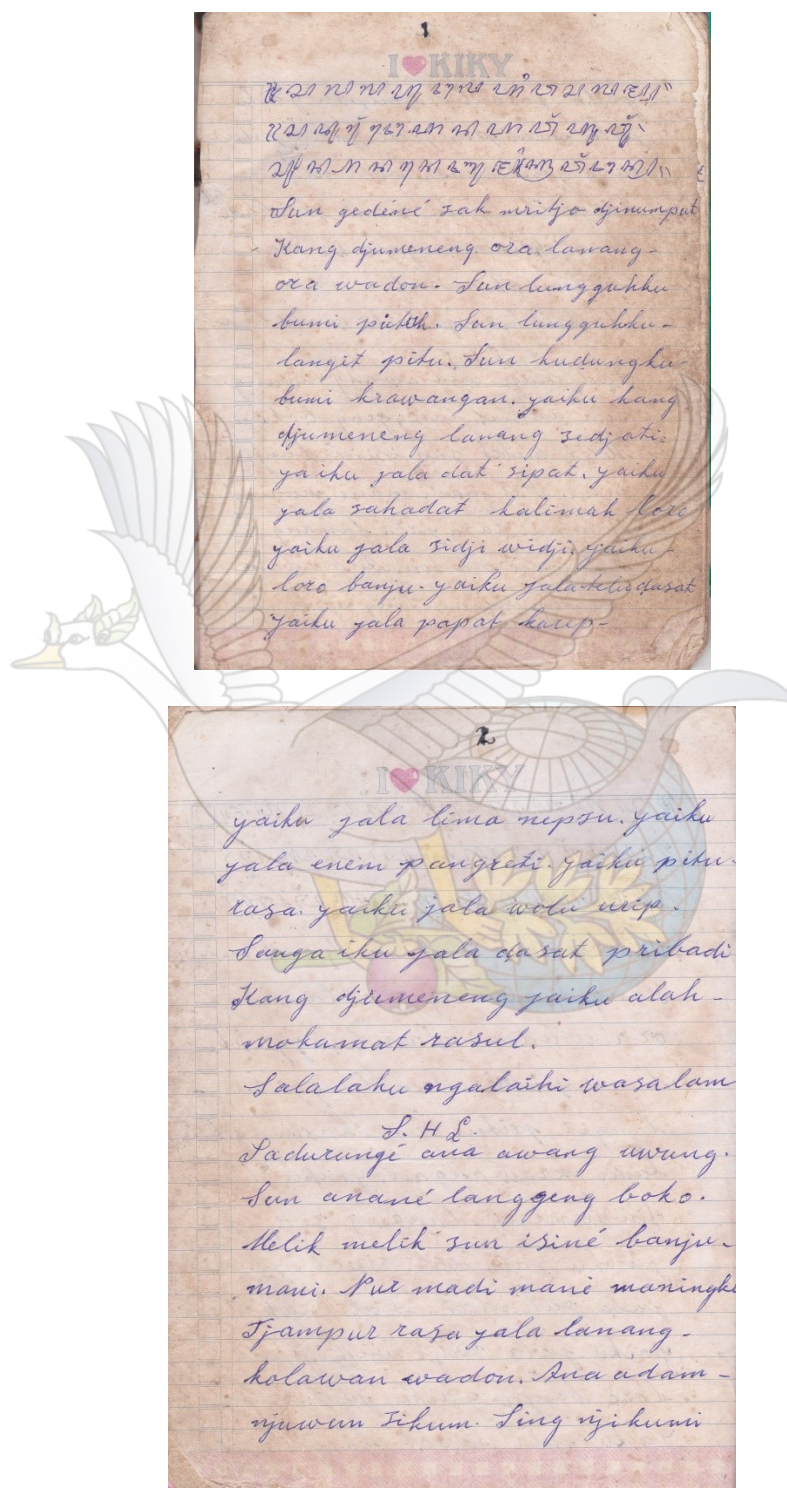 1
I ❤ KIKY
Sun gedéné sak mritjo djinumput
Kang djumeneng ora lanang-
ora wadon. Sun lungguhku
bumi pituh. Sun lungguhku-
langit pitu. Sun kudungku
bumi krawangan. yaiku kang
djumeneng lanang sedjati.
ya iku yala dat sipat. yaiku
yala sahadat kalimah loro
yaiku yala sidji widji. yaiku-
loro banju. yaiku yala telu dasat
yaiku yala papat karep-
2
I ❤ KIKY
yaiku yala lima nepsu. yaiku
yala enem pangreti. yaiku pitu-
rasa. yaiku yala wolu urip-
Sanga iku yala dasat pribadi
Kang djumeneng yaiku alah-
mokamat rasul.
Salalahu ngalaihi wasalam
S. H L.
Sadurungé ana awang uwung.
Sun anané langgeng boko.
Melik melik sun isiné banju-
mani. Nur madi mani maningk
Tjampur rasa yala lanang-
kolawan wadon. Ana adam-
njuwun sikum. Sing njikumi